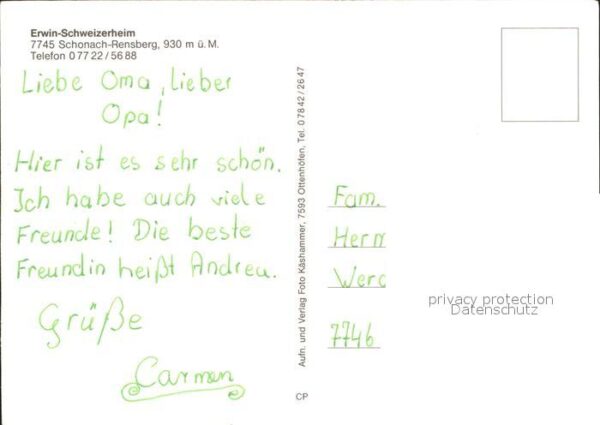 Erwin-Schweizerheim
7745 Schonach-Rensberg, 930 m ü. M.
Telefon 0 77 22 / 56 88
Liebe Oma, lieber
Opa!
Hier ist es sehr schön.
Ich habe auch viele
Freunde! Die beste
Freundin heißt Andrea.
Grüße
Carmen
Aufn. und Verlag Foto Käshammer, 7593 Ottenhöfen, Tel. 0 78 42 / 26 47
CP
Fam.
Herm
Werc
7746
privacy protection
Datenschutz